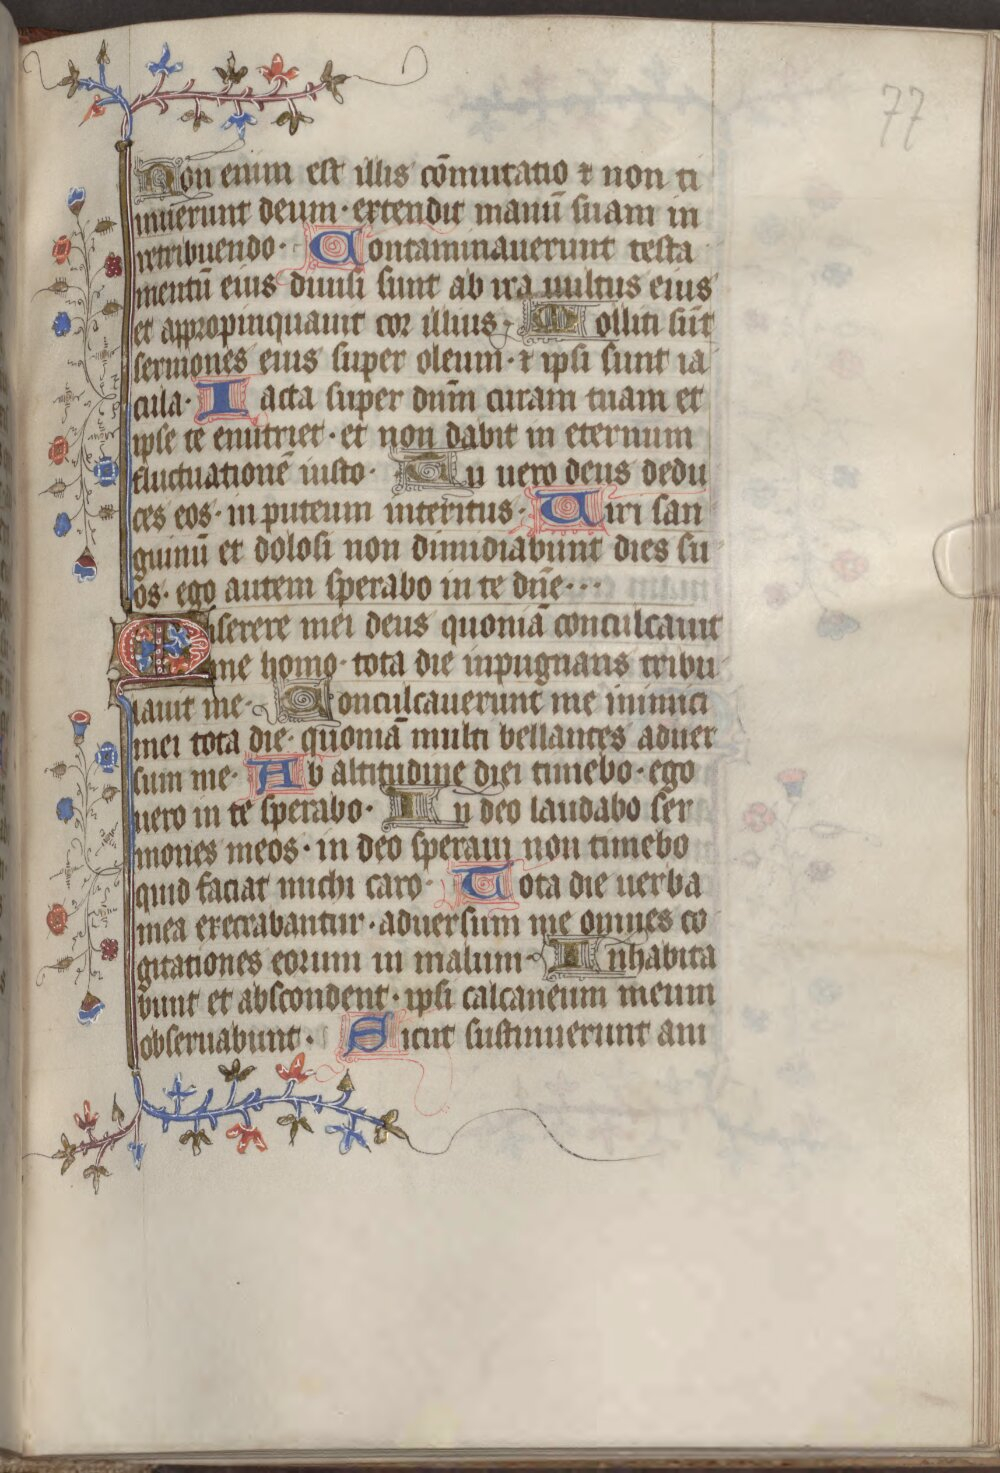 77
Non enim est illis cōmutatio ⁊ non ti
muerunt deum · extendit manū suam in
retribuendo · Contaminauerunt testa
mentū eius diuisi sunt ab ira uultus eius
et appropinquauit cor illius · Molliti sūt
sermones eius super oleum · ⁊ ipsi sunt ia
cula · Iacta super dn̄m curam tuam et
ipse te enutriet · et non dabit in eternum
fluctuationē iusto · Tu uero deus dedu
ces eos · in puteum interitus · Uiri san
guinū et dolosi non dimidiabunt dies su
os · ego autem sperabo in te dn̄e · · ·
Miserere mei deus quoniā conculcauit
me homo · tota die inpugnans tribu
lauit me · Conculcauerunt me inimici
mei tota die · quoniā multi bellantes aduer
sum me · Ab altitudine diei timebo · ego
uero in te sperabo · In deo laudabo ser
mones meos · in deo speraui non timebo
quid faciat michi caro · Tota die uerba
mea execrabantur · aduersum me omnes co
gitationes eorum in malum · Inhabita
bunt et abscondent · ipsi calcaneum meum
obseruabunt · Sicut sustinuerunt ani